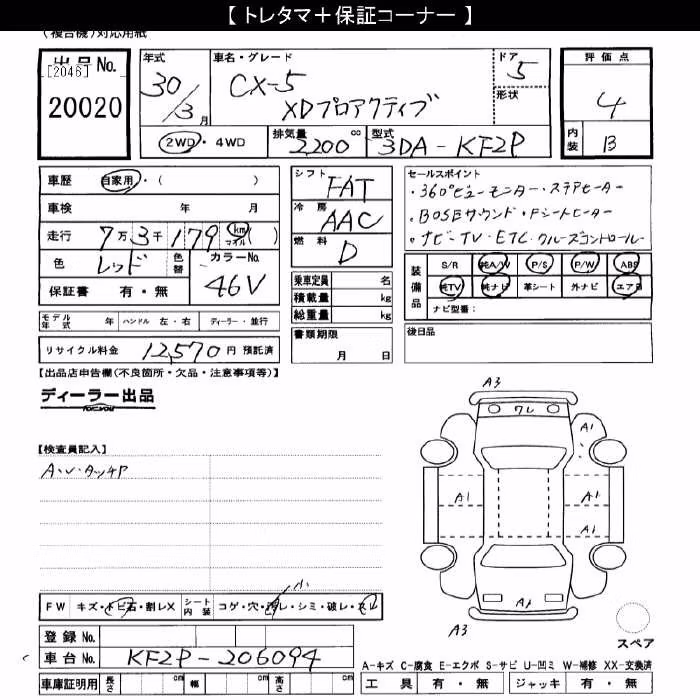 【 トレタマ＋保証コーナー 】
(複合機)対応用紙
出品No.
[2046]
20020
年式
30/3月
車名・グレード
CX-5
XDプロアクティブ
ドア
5
形状
評価点
4
内装
B
2WD・4WD
排気量
2,200 cc
型式
3DA-KF2P
車歴 自家用・( )
車検 年 月
走行 7万3千179 km マイル ( )
色 レッド 色替
カラーNo.
46V
保証書 有・無
シフト
FAT
冷房
AAC
燃料
D
乗車定員 名
積載量 kg
総重量 kg
セールスポイント
・360°ビューモニター・ステアヒーター
・BOSEサウンド・Fシートヒーター
・ナビ・TV・ETC・クルーズコントロール
装備品
S/R 純A/W P/S P/W ABS
純TV 純ナビ 革シート 外ナビ エアB
ナビ型番：
モデル年式 年 ハンドル 左・右 ディーラー・並行
リサイクル料金 12,570 円 預託済
書類期限
月 日
後日品
【出品店申告欄(不良箇所・欠品・注意事項等)】
ディーラー出品
【検査員記入】
A・U・タッチP
A3
ワレ
A1
A1
A1
A1
A1
A3
スペア
FW キズ・トビ石・割レX シート内装 コゲ・穴・汚レ・シミ・破レ・スレ
小
登録No.
車台No. KF2P-206094
車庫証明用 長さ cm 幅 cm 高さ cm
A-キズ C-腐食 E-エクボ S-サビ U-凹ミ W-補修 XX-交換済
工具 有・無 ジャッキ 有・無